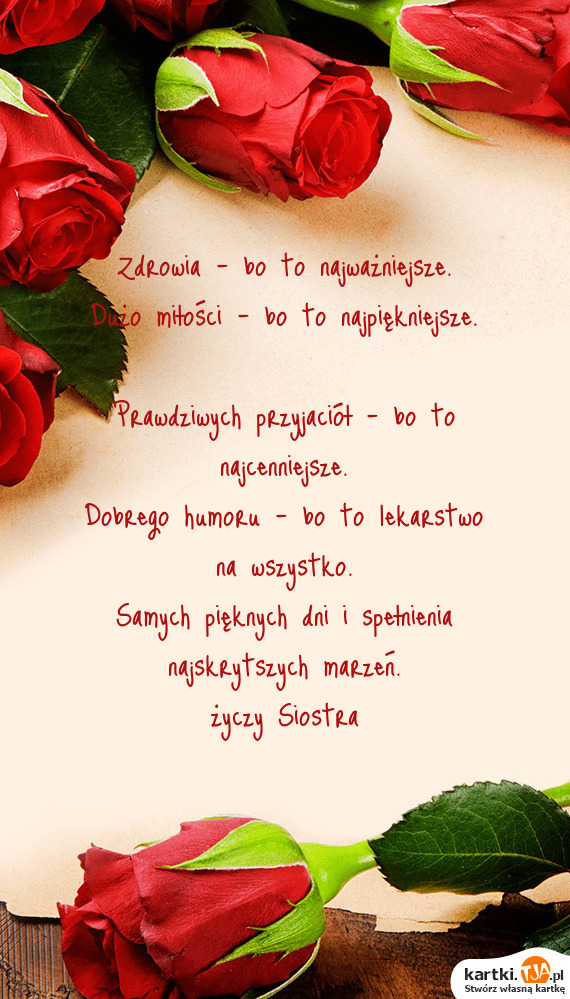 Zdrowia - bo to najważniejsze.
Dużo miłości - bo to najpiękniejsze.
Prawdziwych przyjaciół - bo to
najcenniejsze.
Dobrego humoru - bo to lekarstwo
na wszystko.
Samych pięknych dni i spełnienia
najskrytszych marzeń.
życzy Siostra
kartki.TJA.pl
Stwórz własną kartkę